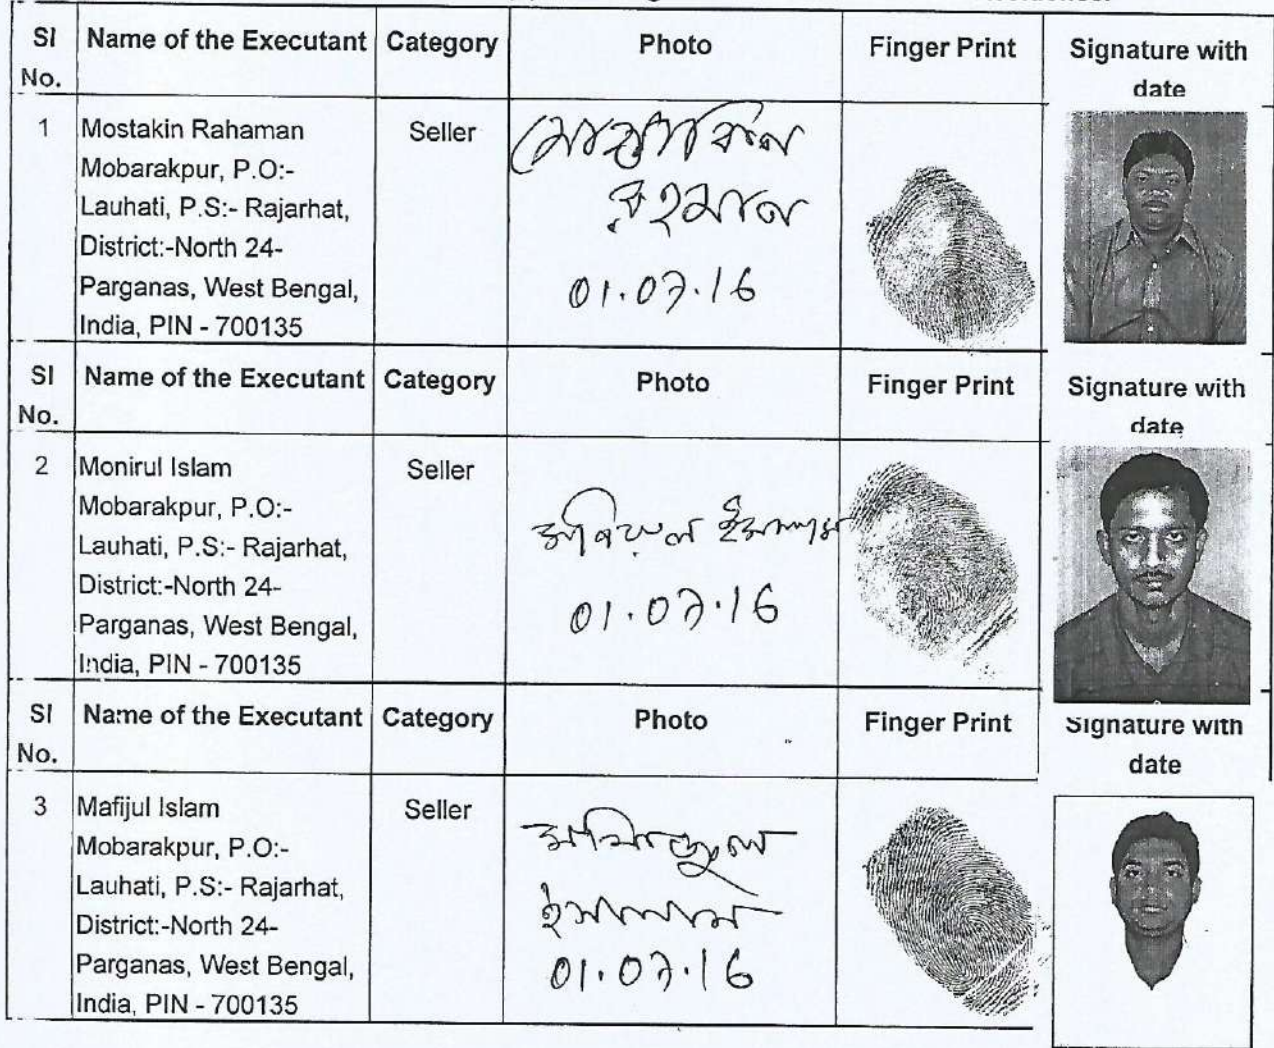 Sl No. Name of the Executant Category Photo Finger Print Signature with date
1 Mostakin Rahaman Seller
Mobarakpur, P.O:-
Lauhati, P.S:- Rajarhat,
District:-North 24-
Parganas, West Bengal,
India, PIN - 700135
মোস্তাকিন
রহমান
01.07.16
Sl No. Name of the Executant Category Photo Finger Print Signature with date
2 Monirul Islam Seller
Mobarakpur, P.O:-
Lauhati, P.S:- Rajarhat,
District:-North 24-
Parganas, West Bengal,
India, PIN - 700135
মনিরুল ইসলাম
01.07.16
Sl No. Name of the Executant Category Photo Finger Print Signature with date
3 Mafijul Islam Seller
Mobarakpur, P.O:-
Lauhati, P.S:- Rajarhat,
District:-North 24-
Parganas, West Bengal,
India, PIN - 700135
মফিজুল
ইসলাম
01.07.16